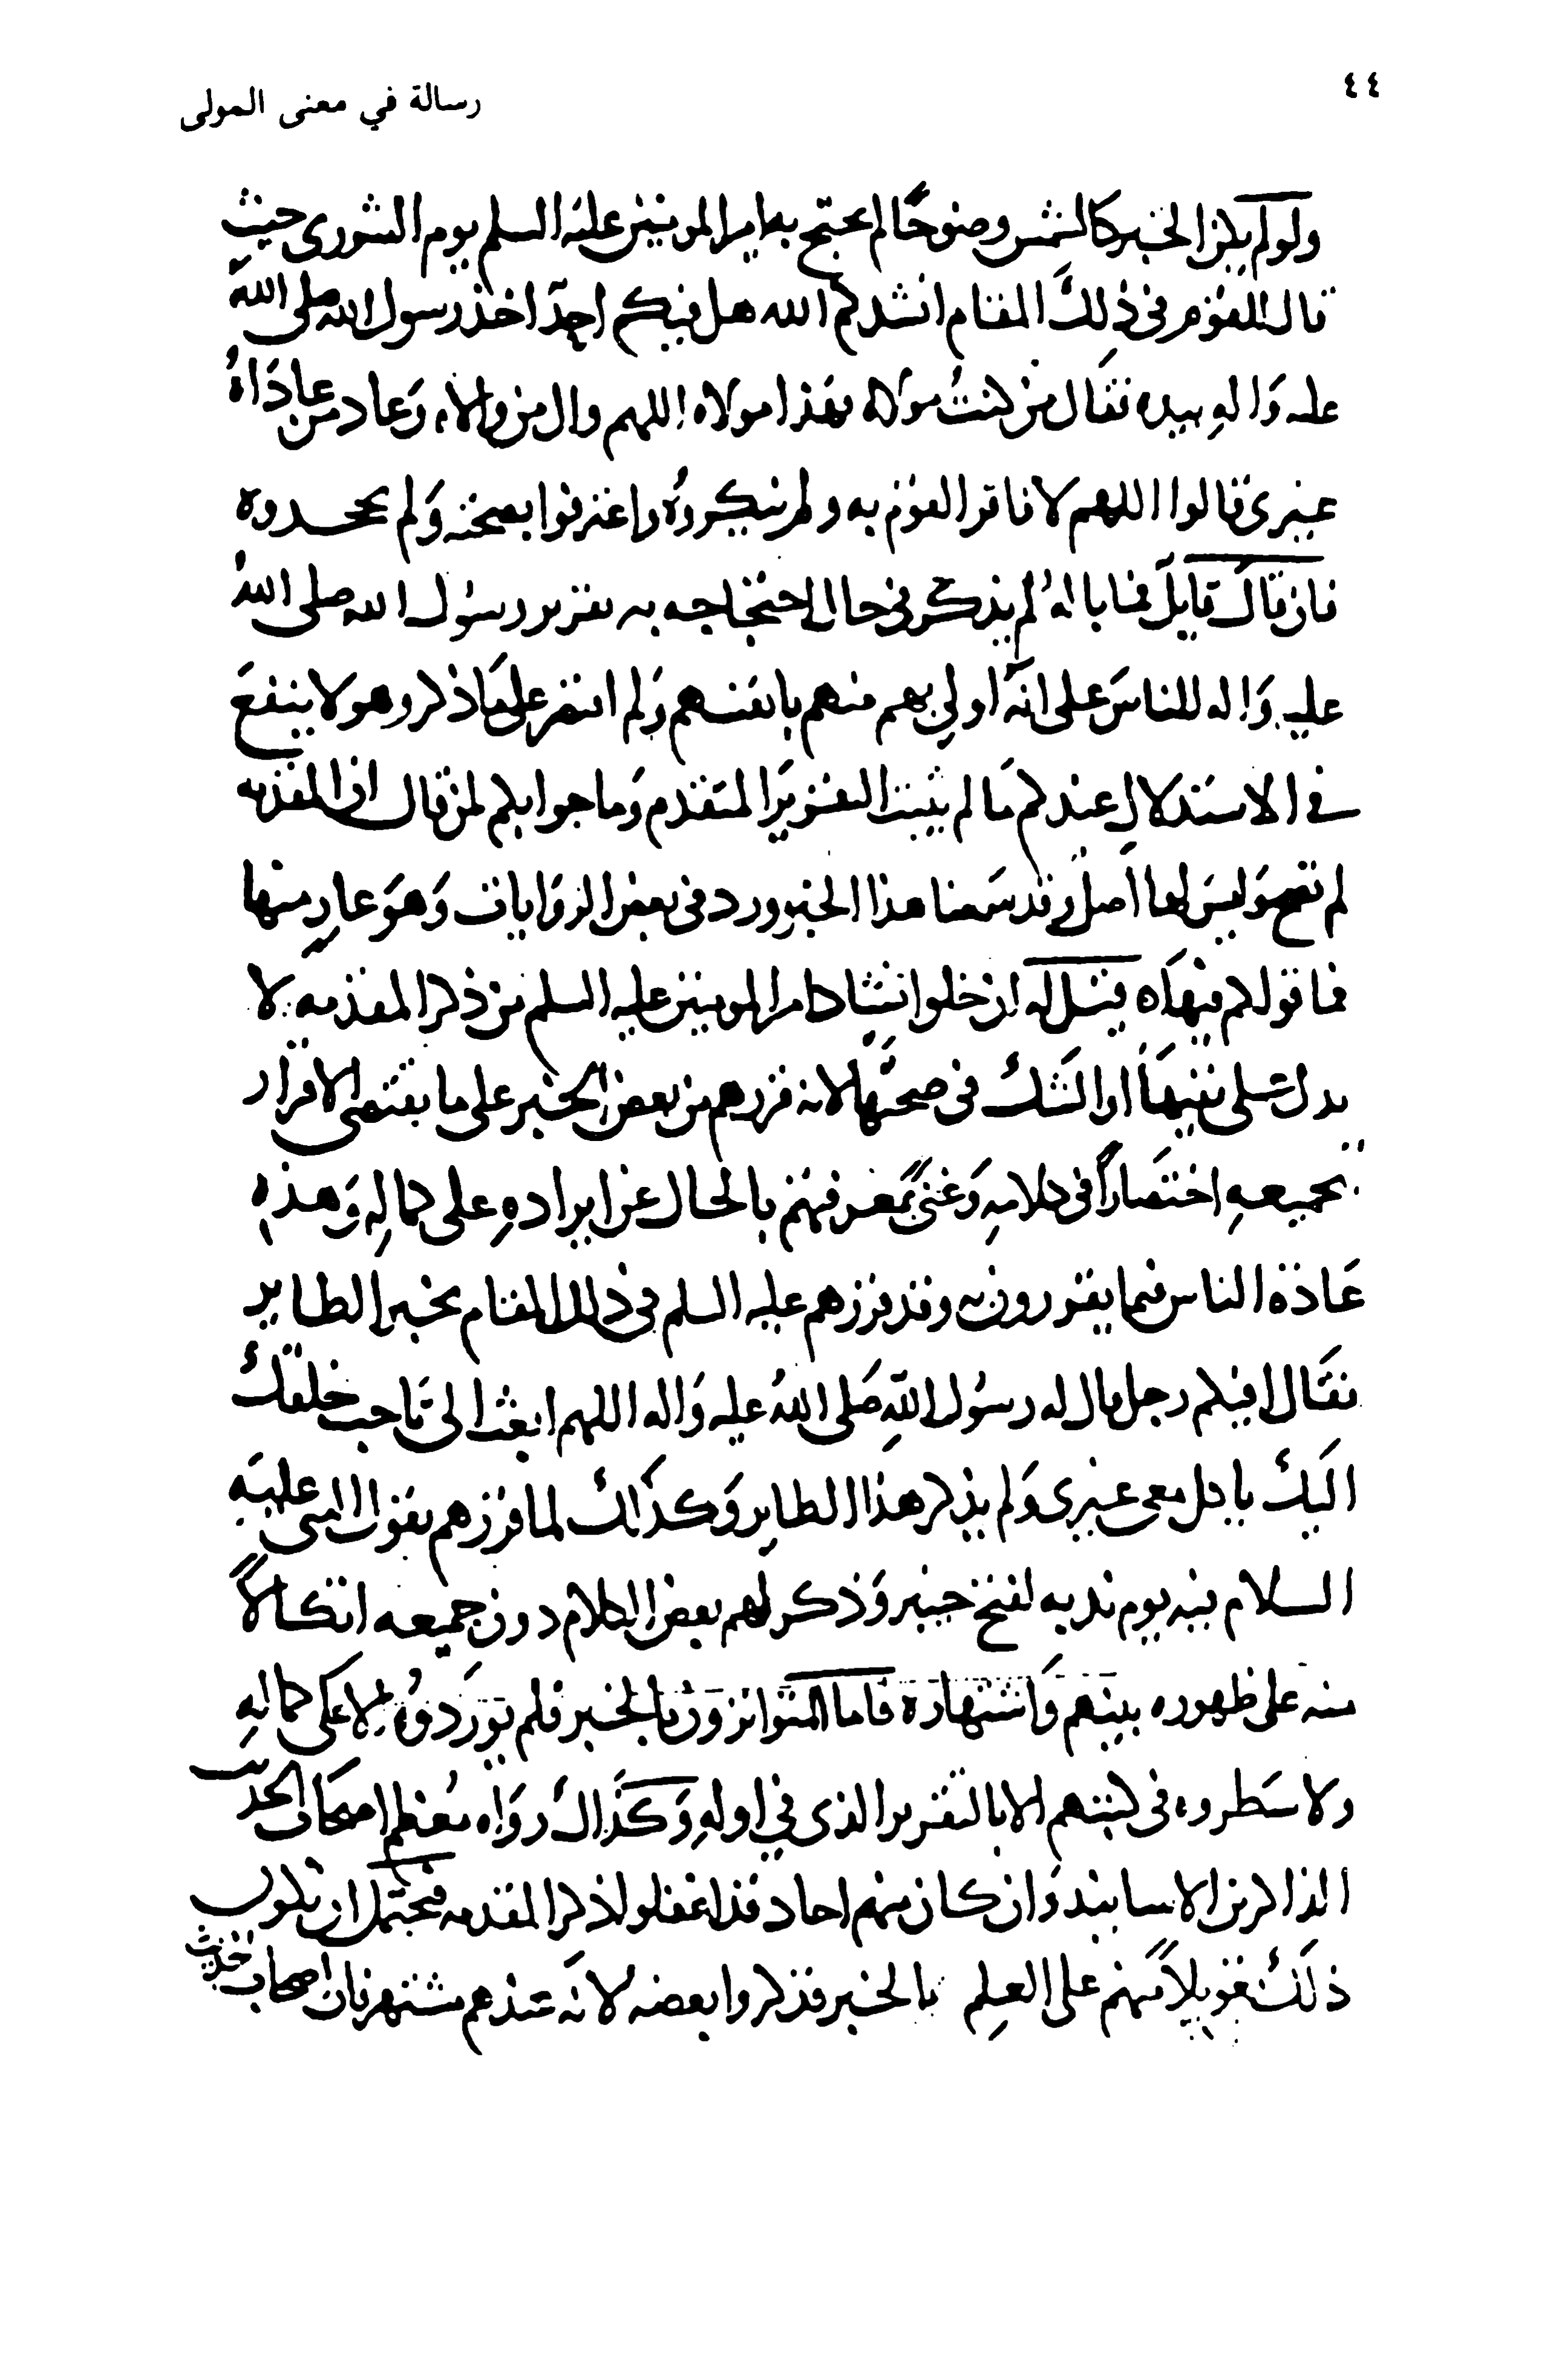 ٤٤
رسالة في معنى المولى
ولو لم يكن الخبر كالشمس وضوحًا لم يحتج به امير المومنين عليه السلم يوم الشورى حيث
قال للقوم في ذلك المقام انشدكم الله هل فيكم احدٌ اخذ رسول الله صلى الله
عليه واله بيده فقال من كنت مولاه فهذا مولاه اللهم وال من والاه وعاد من عاداه
غيرى قالوا اللهم لا فاقر القوم به ولم ينكروه واعترفوا بصحته ولم يجحدوه
فان قال قايل فما باله لم يذكر في حال احتجاجه به تقرير رسول الله صلى الله
عليه واله للناس على انه اولى بهم منهم بانفسهم ولم اقتصر على ما ذكر وهو لا ينفع
في الاستدلال عندكم ما لم يثبت التقرير المتقدم وما جوابكم لمن قال ان المقدمه
لم تصح وليس لها اصل وقد سمعنا هذا الخبر ورد في بعض الروايات وهو عارٍ منها
فما قولكم فيها قيل له ان خلو انشاد امير المومنين عليه السلم من ذكر المقدمه لا
يدل على نفيها او الشك في صحتها لانه قررهم من بعض الخبر على ما يقتضى الاقرار
بجميعه اختصارًا في كلامه وغنىً بمعرفتهم بالحال عن ايراده على كماله وهذه
عادة الناس فيما يقررون به وقد قررهم عليه السلم في ذلك المقام بخبر الطاير
فقال افيكم رجل قال له رسول الله صلى الله عليه واله اللهم ابعث الى باحب خلقك
اليك ياكل معى غيرى ولم يذكر هذا الطاير وكذلك لما قررهم بقول النبى عليه
السلام فيه يوم ندبه لفتح خيبر وذكر لهم بعض الكلام دون جميعه اتكالًا
منه على ظهوره بينهم واشتهاره فاما المتواترون بالخبر فلم يوردوه الا على كماله
ولا سطروه في كتبهم الا بالتقرير الذى في اوله وكذلك رواه معظم اصحاب الحديث
الذاكرين الاسانيد وان كان منهم احاد قد اغفلوا ذكر المقدمه فيحتمل ان يكون
ذلك تعويلًا منهم على العلم بالخبر فذكروا بعضه لانه عندهم مشتهر فان اصحاب الحديث